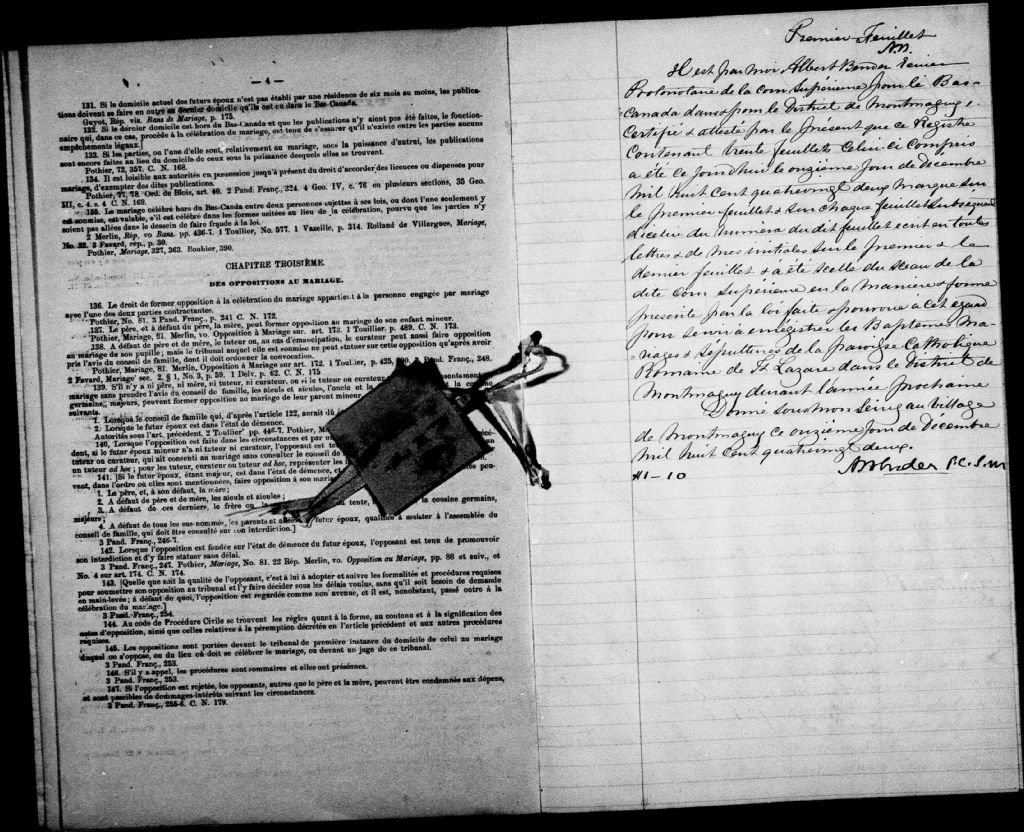 — 4 —
131. Si le domicile actuel des futurs époux n'est pas établi par une résidence de six mois au moins, les publica-
tions doivent se faire en outre au dernier domicile qu'ils ont eu dans le Bas-Canada.
Guyot, Rép. vis. Bans de Mariage, p. 175.
132. Si le dernier domicile est hors du Bas-Canada et que les publications n'y aient pas été faites, le fonction-
naire qui, dans ce cas, procède à la célébration du mariage, est tenu de s'assurer qu'il n'existe entre les parties aucun
empêchements légaux.
133. Si les parties, ou l'une d'elle sont, relativement au mariage, sous la puissance d'autrui, les publications
sont encore faites au lieu du domicile de ceux sous la puissance desquels elles se trouvent.
Pothier, 72, 357. C. N. 168.
134. Il est loisible aux autorités en possession jusqu'à présent du droit d'accorder des licences ou dispenses pour
mariage, d'exempter des dites publications.
Pothier, 77, 78. Ord. de Blois, art. 40. 2 Pand. Franç., 324. 4 Geo. IV, c. 76 en plusieurs sections, 35 Geo.
III, c. 4. s. 4 C. N. 169.
135. Le mariage célébré hors du Bas-Canada entre deux personnes sujettes à ses lois, ou dont l'une seulement y
est soumise, est valable, s'il est célébré dans les formes usitées au lieu de la célébration, pourvu que les parties n'y
soient pas allées dans le dessein de faire fraude à la loi.
2 Merlin, Rép. vo Bans. pp. 436-7. 1 Toullier, No. 577. 1 Vazeille, p. 314. Rolland de Villargues, Mariage,
No. 32. 3 Favard, rép. p. 39.
Pothier, Mariage, 327, 363. Rouhier, 390.
CHAPITRE TROISIÈME.
DES OPPOSITIONS AU MARIAGE.
136. Le droit de former opposition à la célébration du mariage appartient à la personne engagée par mariage
avec l'une des deux parties contractantes.
Pothier, No. 81. 3 Pand. Franç., p. 241 C. N. 172.
137. Le père, et à défaut du père, la mère, peut former opposition au mariage de son enfant mineur.
Pothier, Mariage, 81. Merlin, vo. Opposition à Mariage sur. art. 173. 1 Touillier, p. 489. C. N. 173.
138. A défaut de père et de mère, le tuteur ou, au cas d'émancipation, le curateur peut aussi faire opposition
au mariage de son pupille; mais le tribunal auquel elle est soumise ne peut statuer sur cette opposition qu'après avoir
pris l'avis du conseil de famille, dont il doit ordonner la convocation.
Pothier, Mariage, 81. Merlin, Opposition à Mariage sur art. 172. 1 Toullier, p. 425, Pand. Franç., 248.
2 Favard, Mariage sec. 2, § 1, No. 3, p. 59. 1 Delv. p. 62. C. N. 175
139. S'il n'y a ni père, ni mère, ni tuteur, ni curateur, ou si le tuteur ou curateur
mariage sans prendre l'avis du conseil de famille, les aïeuls et aïeules, l'oncle et la
germains, majeurs, peuvent former opposition au mariage de leur parent mineur
suivants.
1. Lorsque le conseil de famille qui, d'après l'article 122, aurait dû
2. Lorsque le futur époux est dans l'état de démence.
Autorités sous l'art. précédent. 2 Toullier, pp. 446-7. Pothier,
140. Lorsque l'opposition est faite dans les circonstances et par
dent, si le futur époux mineur n'a ni tuteur ni curateur, l'opposant est
tuteur ou curateur, qui ait consenti au mariage sans consulter le conseil
un tuteur ad hoc; pour les tuteur, curateur ou tuteur ad hoc, représenter les
141. [Si le futur époux, étant majeur, est dans l'état de démence,
vant, dans l'ordre où elles sont mentionnées, faire opposition à son
1. Le père, et, à son défaut, la mère;
2. A défaut de père et de mère, les aïeuls et aïeules;
3. A défaut de ces derniers, le frère ou tante, la cousine germains,
majeurs;
4. A défaut de tous les sus-nommés, les parents et futur époux, qualifiés à assister à l'assemblée du
conseil de famille, qui doit être consulté sur son interdiction.]
3 Pand. Franç., 246-7.
142. Lorsque l'opposition est fondée sur l'état de démence du futur époux, l'opposant est tenu de promouvoir
son interdiction et d'y faire statuer sans délai.
3 Pand. Franç., 247. Pothier, Mariage, No. 81. 22 Rép. Merlin, vo. Opposition au Mariage, pp. 88 et suiv., et
No. 4 sur art. 174. C. N. 174.
143. [Quelle que soit la qualité de l'opposant, c'est à lui à adopter et suivre les formalités et procédures requises
pour soumettre son opposition au tribunal et l'y faire décider sous les délais voulus, sans qu'il soit besoin de demande
en main-levée; à défaut de quoi, l'opposition est regardée comme non avenue, et il est, nonobstant, passé outre à la
célébration du mariage.]
3 Pand. Franç., 254.
144. Au code de Procédure Civile se trouvent les règles quant à la forme, au contenu et à la signification des
actes d'opposition, ainsi que celles relatives à la péremption décrétée en l'article précédent et aux autres procédures
requises.
145. Les oppositions sont portées devant le tribunal de première instance du domicile de celui au mariage
duquel on s'oppose, ou du lieu où doit se célébrer le mariage, ou devant un juge de ce tribunal.
3 Pand. Franç., 253.
146. S'il y a appel, les procédures sont sommaires et elles ont préséance.
3 Pand. Franç., 253.
147. Si l'opposition est rejetée, les opposants, autres que le père et la mère, peuvent être condamnés aux dépens,
et sont passibles de dommages-intérêts suivant les circonstances.
3 Pand. Franç., 255-6. C. N. 179.
Premier Feuillet
Il est par moi Albert Bender Ecuier
Protonotaire de la cour Supérieure pour le Bas-
Canada dans & pour le District de Montmagny,
Certifié & attesté par le présent que ce Registre
Contenant trente feuillets Celui ci compris
a été ce jourd'hui le onzième jour de décembre
mil huit cent quatrevingt deux marqué sur
le premier feuillet & sur chaque feuillet subsequent
dicelui du numero du dit feuillet ecrit en toutes
lettres & de mes initiales sur le premier & le
dernier feuillet & a été scellé du sceau de la
dite cour Supérieure en la manière & forme
prescrite par la loi faite & pourvue à cet egard
pour servir à enregistrer les Baptemes Ma-
riages & Sépultures de la paroisse Catholique
Romaine de St Lazare dans le District de
Montmagny durant l'année prochaine
Donné sous mon Seing au Village
de Montmagny ce onzième jour de Décembre
mil huit Cent quatrevingt deux.
ABender P.C.S.M
#1-10